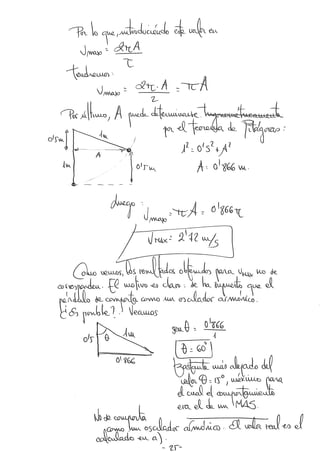 Por lo que, introduciendo este valor en
Vmax = 2πA
τ
tendremos:
Vmax = 2π·A = πA
2
Por último, A puede determinarse trigonometricamente
por el teorema de Pitágoras:
0'5m 1m
A 1² = 0'5² + A²
1m 0'5m A = 0'866 m.
Luego
Vmax = πA = 0'866π
Vmax = 2'72 m/s
Como vemos, los resultados obtenidos para Vmax no se
corresponden. El motivo es claro: se ha supuesto que el
péndulo se comporta como un oscilador armónico.
¿Es posible? Veamos
1m sen θ = 0'866
0'5 θ 1
0'866 θ = 60°
Bastante más alejado del
valor θ = 15°, máximo para
el cual el comportamiento
era el de un MAS.
No se comporta
como un oscilador armónico. El valor real es el
calculado en a).
- 25 -